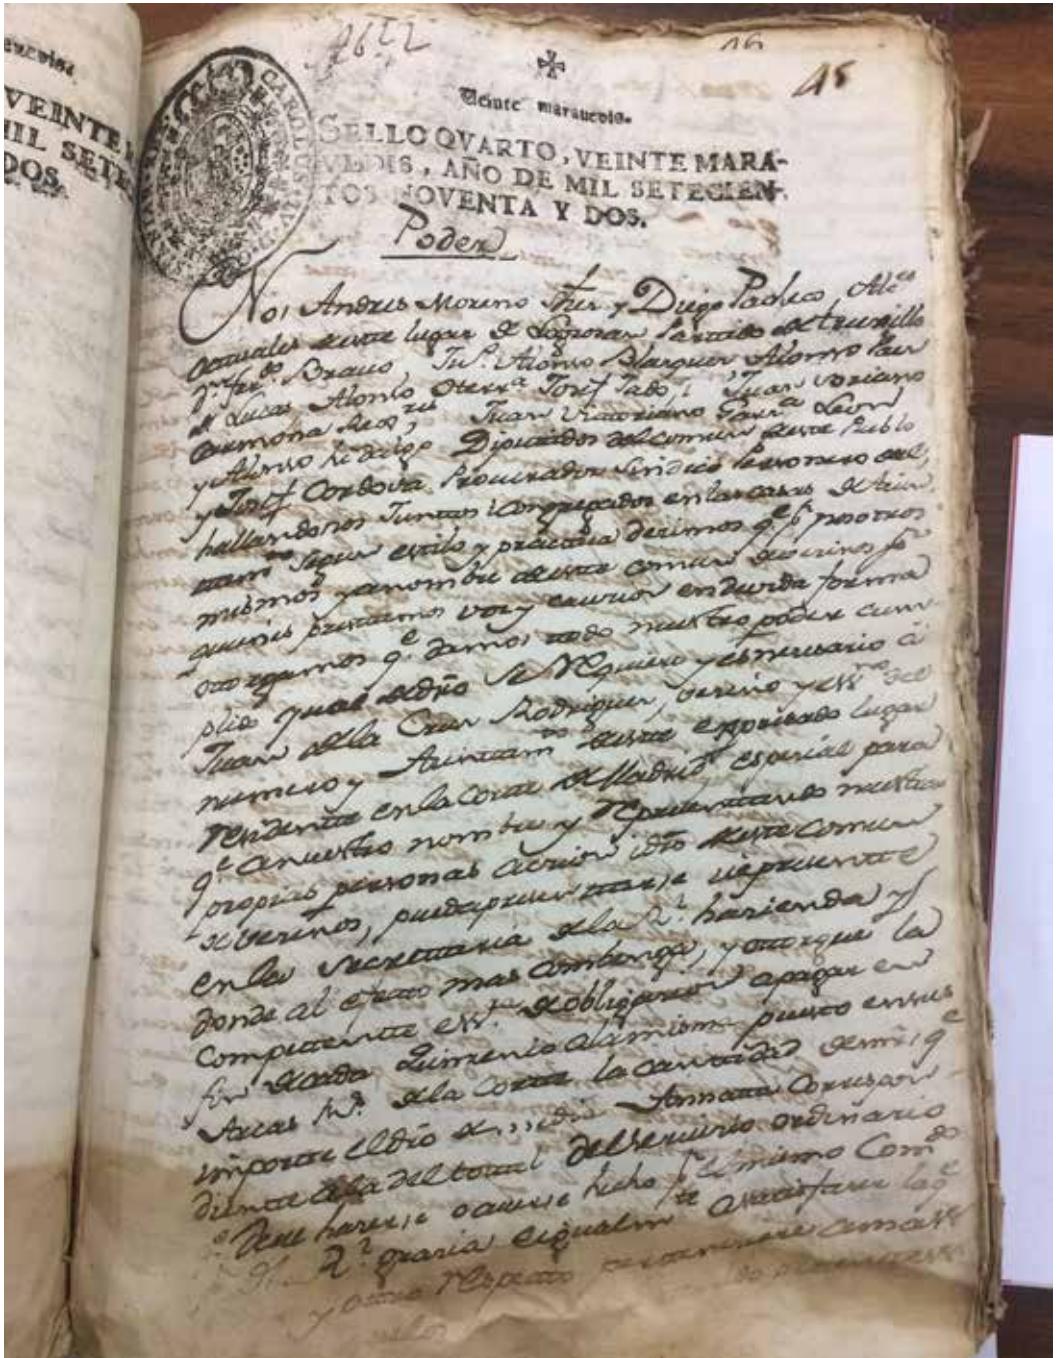 9622
16
45
Veinte maravedis.
SELLO QVARTO, VEINTE MARA-
VEDIS, AÑO DE MIL SETECIEN-
TOS NOVENTA Y DOS.
Poder
Nos Andres Moreno y Diego Pacheco, Alces
actuales deeste lugar de Logrosan Partido de trujillo
Bravo, Alonso Blazquez Alonso
de Lucas, Alonso Josef Juan Soriano
Carmona Juan Victoriano Garcia Leon
y Alonso Hidalgo Diputados del comun deeste Pueblo
y Josef Cordova Procurador Sindico Personero del,
hallandonos Juntos i congregados en las casas de Aiun
tamto segun estilo y practica decimos qe pr nosotros
mismos yanombre deeste comun de vecinos pr
quienes prestamos voz y caucion en devida forma
otorgamos qe damos todo nuestro poder cum
plido qual de dro se Requiere y es necesario á
Juan de la Cruz Rodriguez, vecino y essno del
numero y Aiuntamto deeste expresado lugar
residente en la Corte de Madrid especial para
qe anuestro nombre y Representando nuestras
propias personas accion i dro deeste comun
de vecinos, pueda presentarse i se presente
en la Secretaria de la Rl. hacienda y
donde al efecto mas combenga, y otorgue la
competente essra de obligacion apagar en
fin de cada quinquenio puesto en sus
Arcas Rs. de la Corte la cantidad de mrs qe
importe el dro de media Annata correspon-
diente ala del total del servicio ordinario
deve hacerse o averse hecho pr el mismo Comun
Rl. gracia eigualmte a satisfacer la qe
y otro Respecto